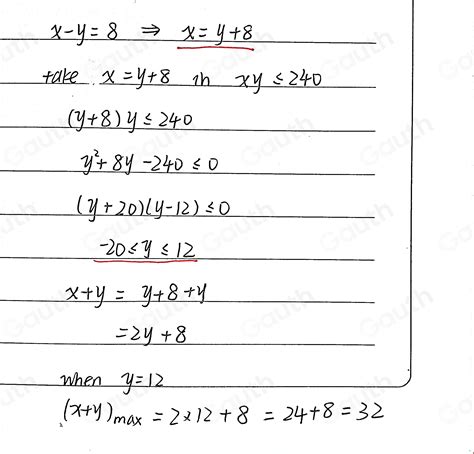 x-y=8 ⇒ x=y+8
take x=y+8 in xy≤240
(y+8)y≤240
y²+8y-240≤0
(y+20)(y-12)≤0
-20≤y≤12
x+y = y+8+y
=2y+8
when y=12
(x+y)max = 2×12+8 = 24+8=32